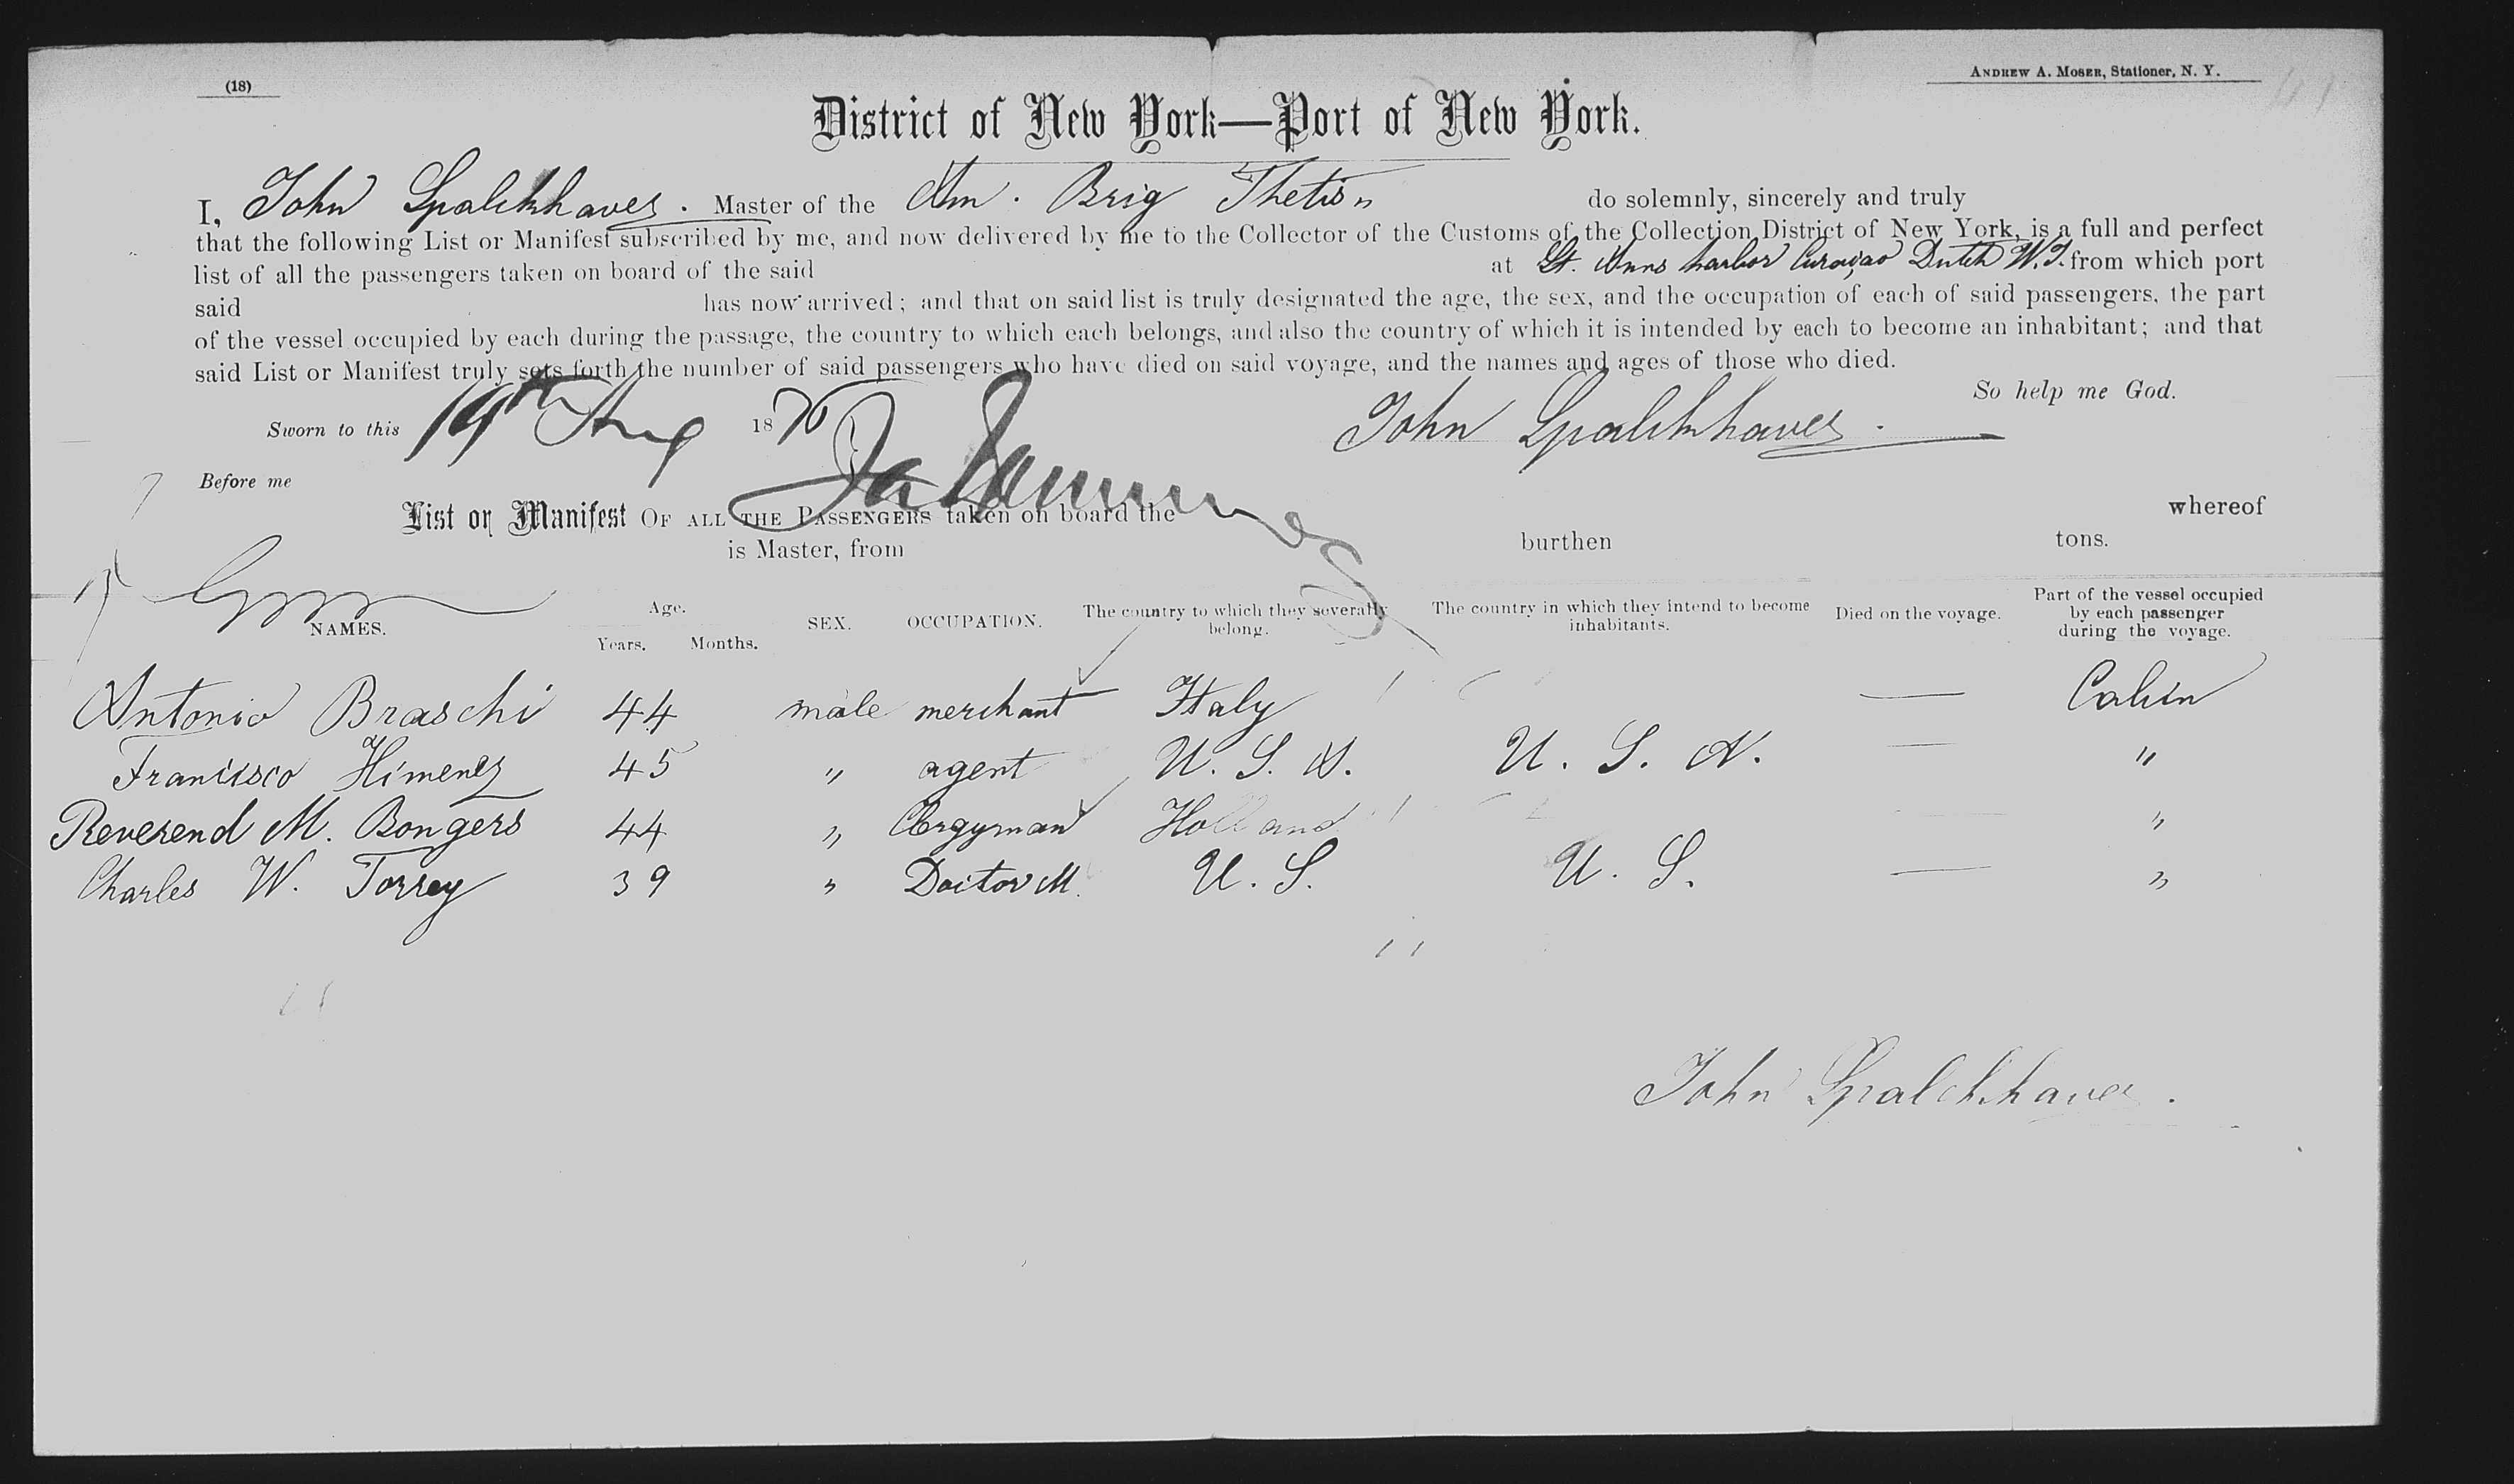 (18)
ANDREW A. MOSER, Stationer, N. Y.
District of New York—Port of New York.
I, John Spalckhaver. Master of the Am. Brig Thetis do solemnly, sincerely and truly
that the following List or Manifest subscribed by me, and now delivered by me to the Collector of the Customs of the Collection District of New York, is a full and perfect
list of all the passengers taken on board of the said at St. Anns harbor Curaçao Dutch W.I. from which port
said has now arrived; and that on said list is truly designated the age, the sex, and the occupation of each of said passengers, the part
of the vessel occupied by each during the passage, the country to which each belongs, and also the country of which it is intended by each to become an inhabitant; and that
said List or Manifest truly sets forth the number of said passengers who have died on said voyage, and the names and ages of those who died.
So help me God.
Sworn to this 19th Aug 1870 John Spalckhaver.
Before me
List or Manifest OF ALL THE PASSENGERS taken on board the whereof
is Master, from burthen tons.
NAMES. Age. Years. Months. SEX. OCCUPATION. The country to which they severally belong. The country in which they intend to become inhabitants. Died on the voyage. Part of the vessel occupied by each passenger during the voyage.
Antonio Braschi 44 male merchant Italy — Cabin
Francisco Himenez 45 " agent U. S. A. U. S. A. — "
Reverend M. Bongers 44 " Clergyman Holland — "
Charles W. Torrey 39 " Doctor M. U. S. U. S. — "
John Spalckhaver.